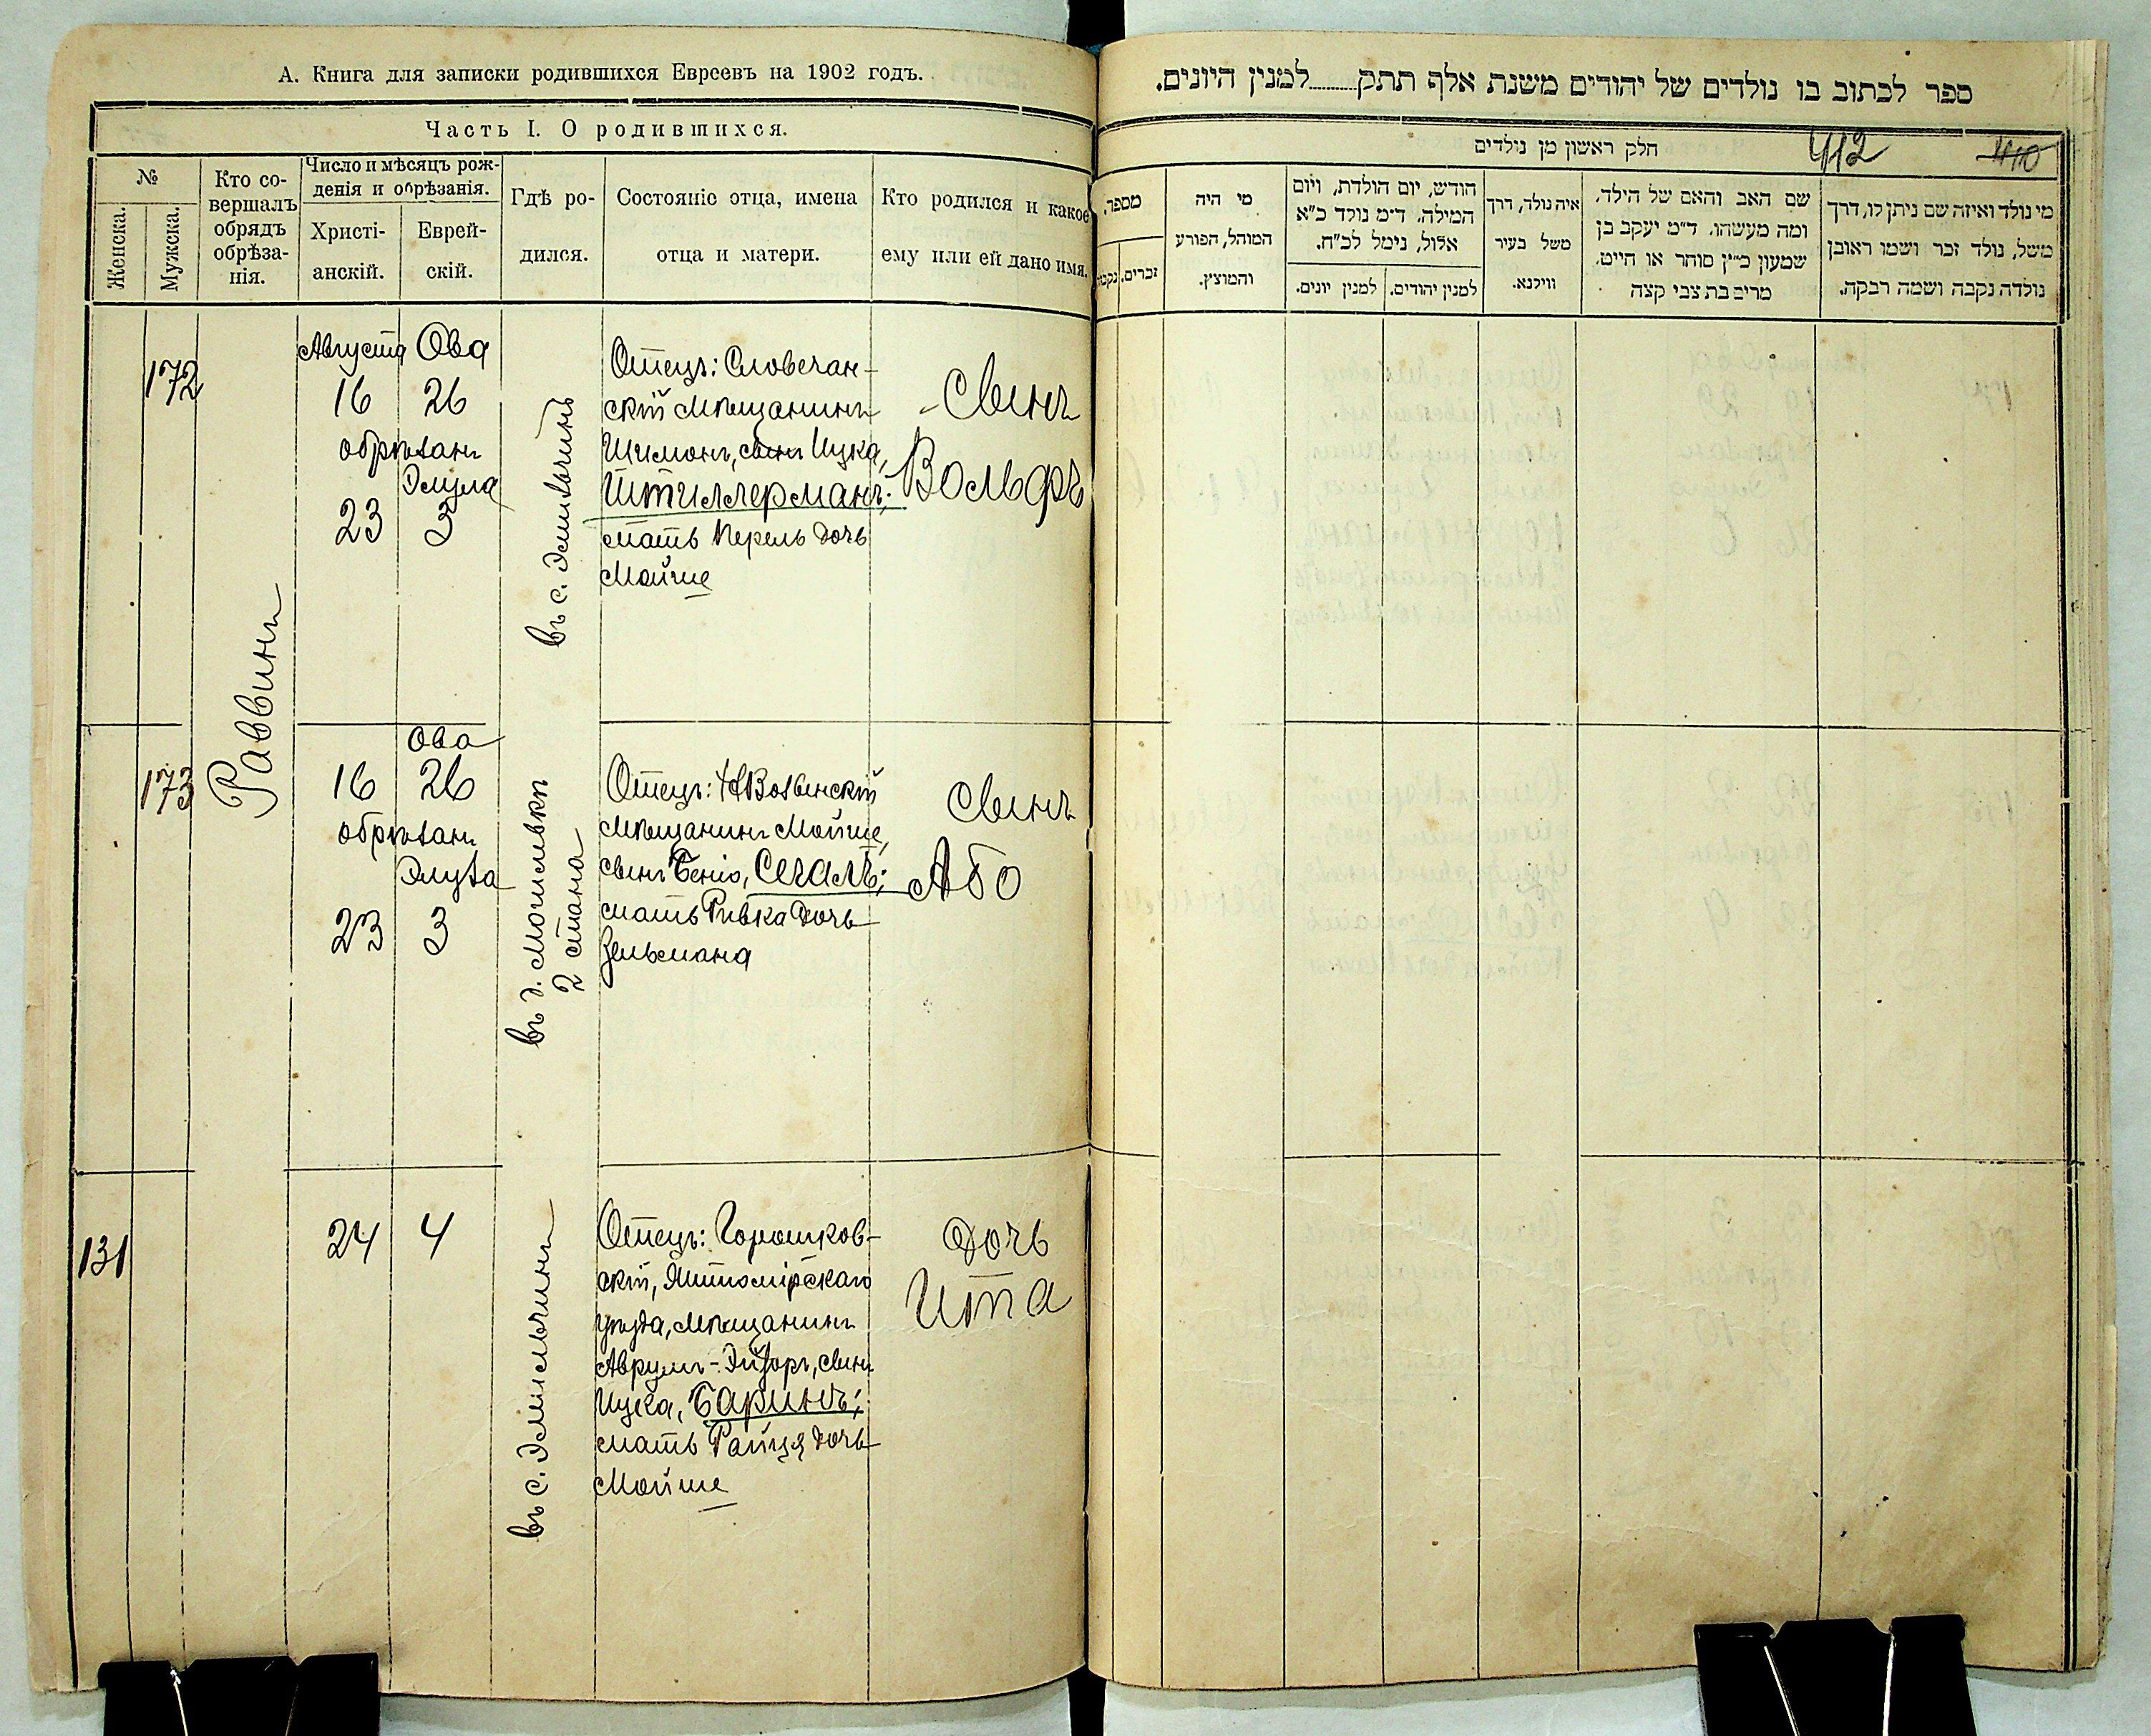 А. Книга для записки родившихся Евреевъ на 1902 годъ.
Часть I. О родившихся.
№
Женска.
Мужска.
Кто со-
вершалъ
обрядъ
обрѣза-
нія.
Число и мѣсяцъ рож-
денія и обрѣзанія.
Христі-
анскій.
Еврей-
скій.
Гдѣ ро-
дился.
Состояніе отца, имена
отца и матери.
Кто родился и какое
ему или ей дано имя.
172
Раввинъ
Августа Ова
16 26
обрѣзанъ
Элула
23 3
въ с. Эмильчинѣ
Отецъ: Словечан-
скій мѣщанинъ
Шимонъ, сынъ Ицка,
Штиллерманъ;
мать Перель дочь
Мойше
Сынъ
Вольфъ
173
Ова
16 26
обрѣзанъ
Элула
23 3
въ д. Могилевкѣ
2 стана
Отецъ: НВолынскій
мѣщанинъ Мойше,
сынъ Бенію, Сегалъ;
мать Ривка дочь
Зельмана
Сынъ
Або
131
24 4
въ с. Эмильчинѣ
Отецъ: Горошков-
скій, Житомірскаго
уѣзда, мѣщанинъ
Аврумъ-Эйзоръ, сынъ
Ицка, Баринъ;
мать Райця дочь
Мойше
Дочь
Ита
ספר לכתוב בו נולדים של יהודים משנת אלף תתק........למנין היונים.
חלק ראשון מן נולדים
412
410
מספר.
זכרים.
נקבו
מי היה
המוהל, הפורע
והמוצץ.
חודש, יום הולדת, ויום
המילה. ד״מ נולד כ״א
אלול, נימל לכ״ח.
למנין יונים.
למנין יהודים.
איה נולד, דרך
משל בעיר
ווילנא.
שם האב והאם של הילד,
ומה מעשהו. ד״מ יעקב בן
שמעון כ״ץ סוחר או חייט.
מרים בת צבי קצה
מי נולד ואיזה שם ניתן לו, דרך
משל, נולד זכר ושמו ראובן
נולדה נקבה ושמה רבקה.